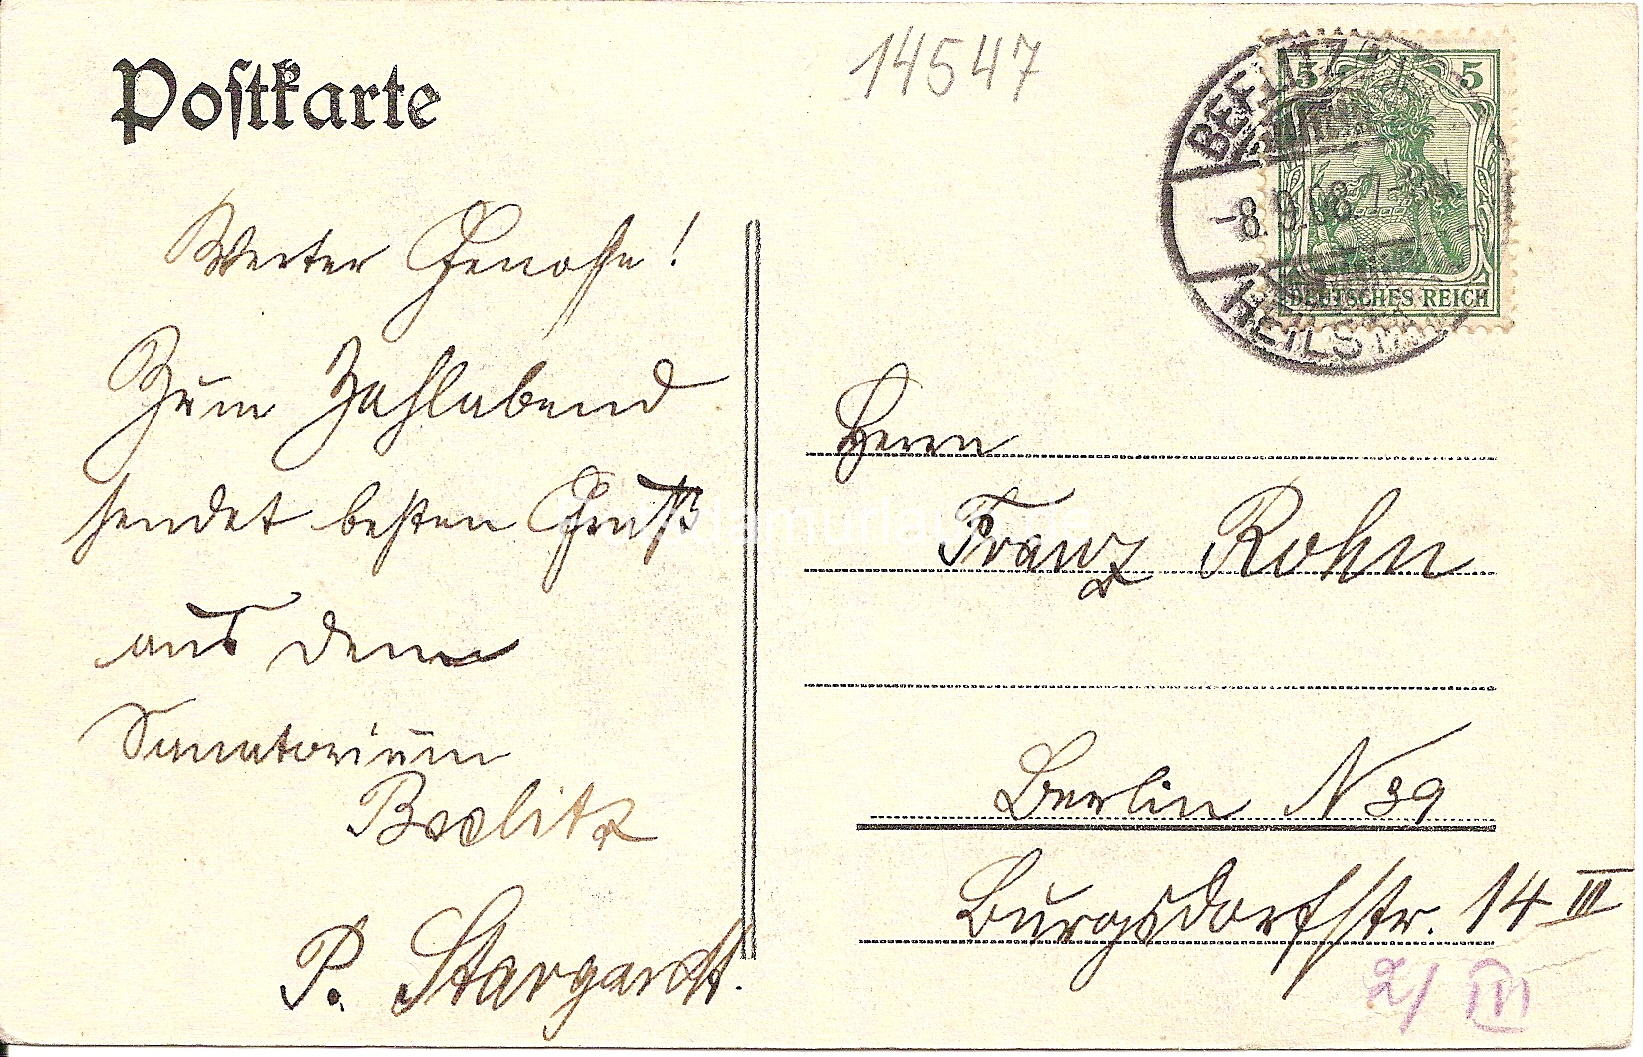 Postkarte
14547
BEELITZ
5
5
-8.9.08.7-
HEILST
DEUTSCHES REICH
Werter Genosse!
Zum Zahlabend
sendet besten Gruß
aus dem
Sanatorium
Beelitz
P. Stargardt.
Herrn
Franz Rohn
Berlin N 39
Burgsdorfstr. 14 III
2/ III